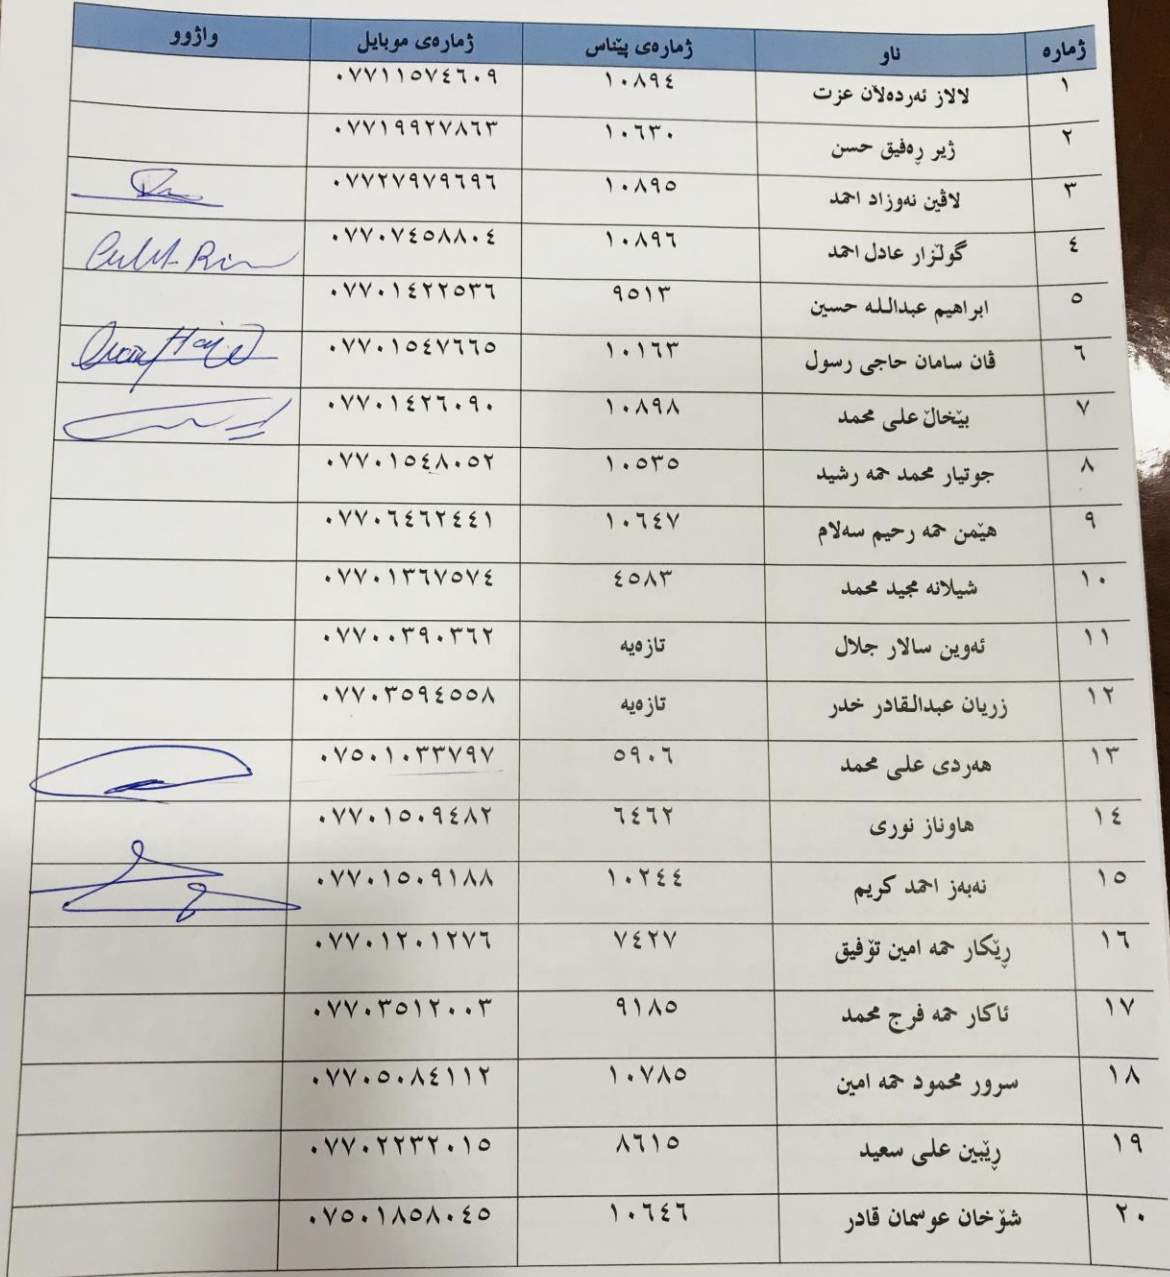 ژماره ناو ژمارەی پێناس ژمارەی موبایل واژوو
١ لالاز ئەردەلان عزت ١٠٨٩٤ ٠٧٧١١٥٧٤٦٠٩
٢ ژیر ڕەفیق حسن ١٠٦٣٠ ٠٧٧١٩٩٢٧٨٦٣
٣ لاڤین نەوزاد احمد ١٠٨٩٥ ٠٧٧٢٧٩٧٩٦٩٦
٤ گوڵزار عادل احمد ١٠٨٩٦ ٠٧٧٠٧٤٥٨٨٠٤
٥ ابراهیم عبدالله حسین ٩٥١٣ ٠٧٧٠١٤٢٢٥٣٦
٦ ڤان سامان حاجی رسول ١٠١٦٣ ٠٧٧٠١٥٤٧٦٦٥
٧ بێخاڵ علی محمد ١٠٨٩٨ ٠٧٧٠١٤٢٦٠٩٠
٨ جوتیار محمد حمه رشید ١٠٥٣٥ ٠٧٧٠١٥٤٨٠٥٢
٩ هێمن حمه رحیم سەلام ١٠٦٤٧ ٠٧٧٠٦٤٦٢٤٤١
١٠ شیلانه مجید محمد ٤٥٨٣ ٠٧٧٠١٣٦٧٥٧٤
١١ ئەوین سالار جلال تازەیه ٠٧٧٠٠٣٩٠٣٦٢
١٢ زریان عبدالقادر خدر تازەیه ٠٧٧٠٣٥٩٤٥٥٨
١٣ هەردی علی محمد ٥٩٠٦ ٠٧٥٠١٠٣٣٧٩٧
١٤ هاوناز نوری ٦٤٦٢ ٠٧٧٠١٥٠٩٤٨٢
١٥ نەبەز احمد کریم ١٠٢٤٤ ٠٧٧٠١٥٠٩١٨٨
١٦ ڕێکار حمه امین تۆفیق ٧٤٢٧ ٠٧٧٠١٢٠١٢٧٦
١٧ ئاکار حمه فرج محمد ٩١٨٥ ٠٧٧٠٣٥١٢٠٠٣
١٨ سرور محمود حمه امین ١٠٧٨٥ ٠٧٧٠٥٠٨٤١١٢
١٩ ڕێبین علی سعید ٨٦١٥ ٠٧٧٠٢٢٣٢٠١٥
٢٠ شۆخان عوسمان قادر ١٠٦٤٦ ٠٧٥٠١٨٥٨٠٤٥